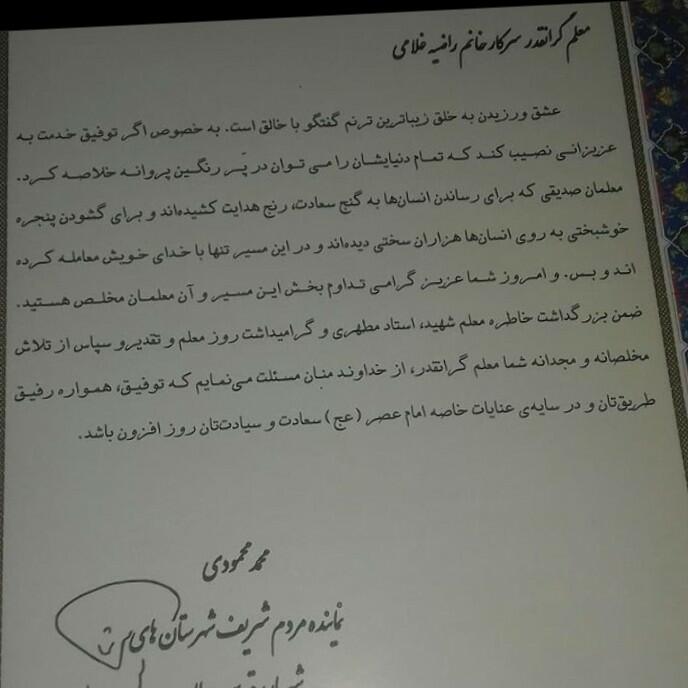 معلم گرانقدر سرکار خانم راضیه غلامی
عشق ورزیدن به خلق زیباترین ترنم گفتگو با خالق است. به خصوص اگر توفیق خدمت به
عزیزانی نصیب کند که تمام دنیایشان را می توان در پَر رنگین پروانه خلاصه کرد.
معلمان صدیقی که برای رساندن انسان‌ها به گنج سعادت، رنج هدایت کشیده‌اند و برای گشودن پنجره
خوشبختی به روی انسان‌ها هزاران سختی دیده‌اند و در این مسیر تنها با خدای خویش معامله کرده
اند و بس. و امروز شما عزیز گرامی تداوم بخش این مسیر و آن معلمان مخلص هستید.
ضمن بزرگداشت خاطره معلم شهید، استاد مطهری و گرامیداشت روز معلم و تقدیرو سپاس از تلاش
مخلصانه و مجدانه شما معلم گرانقدر، از خداوند منان مسئلت می‌نمایم که توفیق، همواره رفیق
طریق‌تان و در سایه‌ی عنایات خاصه امام عصر (عج) سعادت و سیادت‌تان روز افزون باشد.
محمد محمودی
نماینده مردم شریف شهرستان های